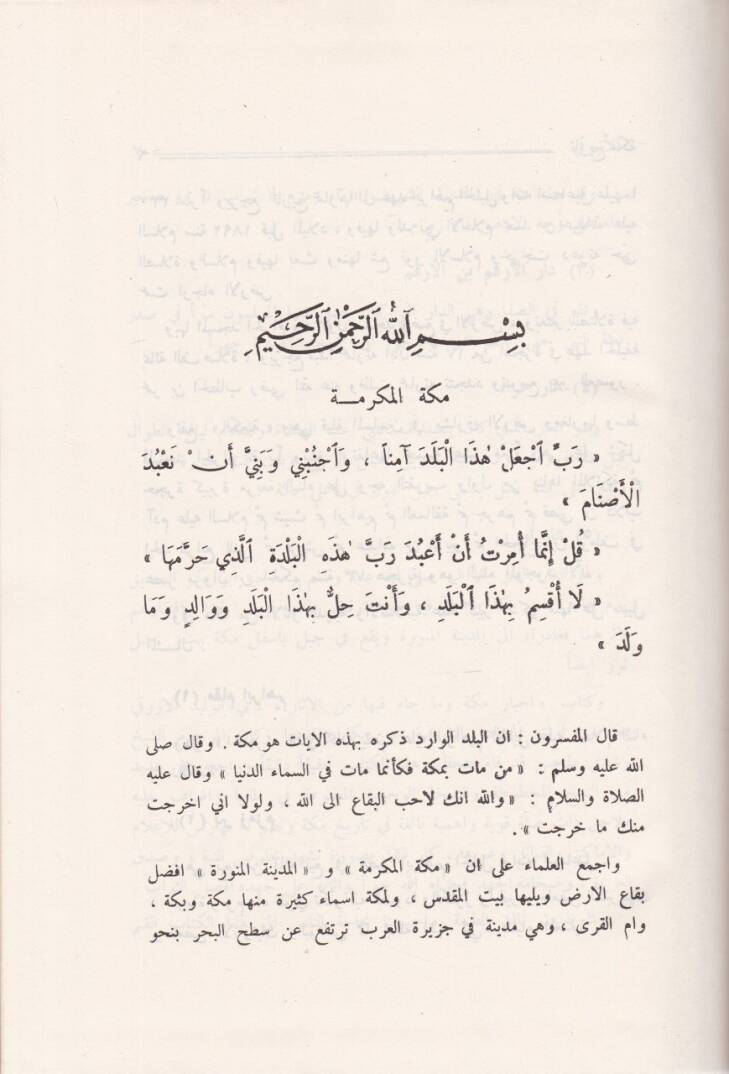 بِسْمِ اللهِ الرَّحْمٰنِ الرَّحِيمِ
مكة المكرمـــة
« رَبِّ اجْعَلْ هٰذَا الْبَلَدَ آمِناً ، وَاجْنُبْنِي وَبَنِيَّ أَنْ نَعْبُدَ
الْأَصْنَامَ »
« قُلْ إِنَّمَا أُمِرْتُ أَنْ أَعْبُدَ رَبَّ هٰذِهِ الْبَلْدَةِ الَّذِي حَرَّمَهَا »
« لَا أُقْسِمُ بِهٰذَا الْبَلَدِ ، وَأَنْتَ حِلٌّ بِهٰذَا الْبَلَدِ وَوَالِدٍ وَمَا
وَلَدَ »
قال المفسرون : ان البلد الوارد ذكره بهذه الايات هو مكة . وقال صلى
الله عليه وسلم : « من مات بمكة فكأنما مات في السماء الدنيا » وقال عليه
الصلاة والسلام : « والله انك لاحب البقاع الى الله ، ولولا اني اخرجت
منك ما خرجت » .
واجمع العلماء على ان « مكة المكرمة » و « المدينة المنورة » افضل
بقاع الارض ويليها بيت المقدس ، ولمكة اسماء كثيرة منها مكة وبكة ،
وام القرى ، وهي مدينة في جزيرة العرب ترتفع عن سطح البحر بنحو